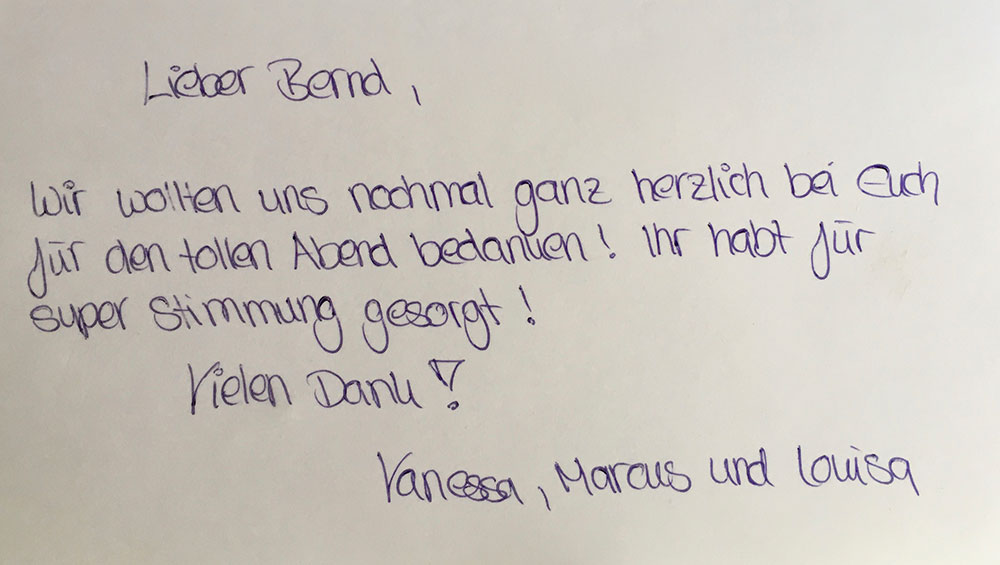 Lieber Bernd,
Wir wollten uns nochmal ganz herzlich bei Euch
für den tollen Abend bedanken! Ihr habt für
super Stimmung gesorgt!
Vielen Dank!
Vanessa, Marcus und Louisa